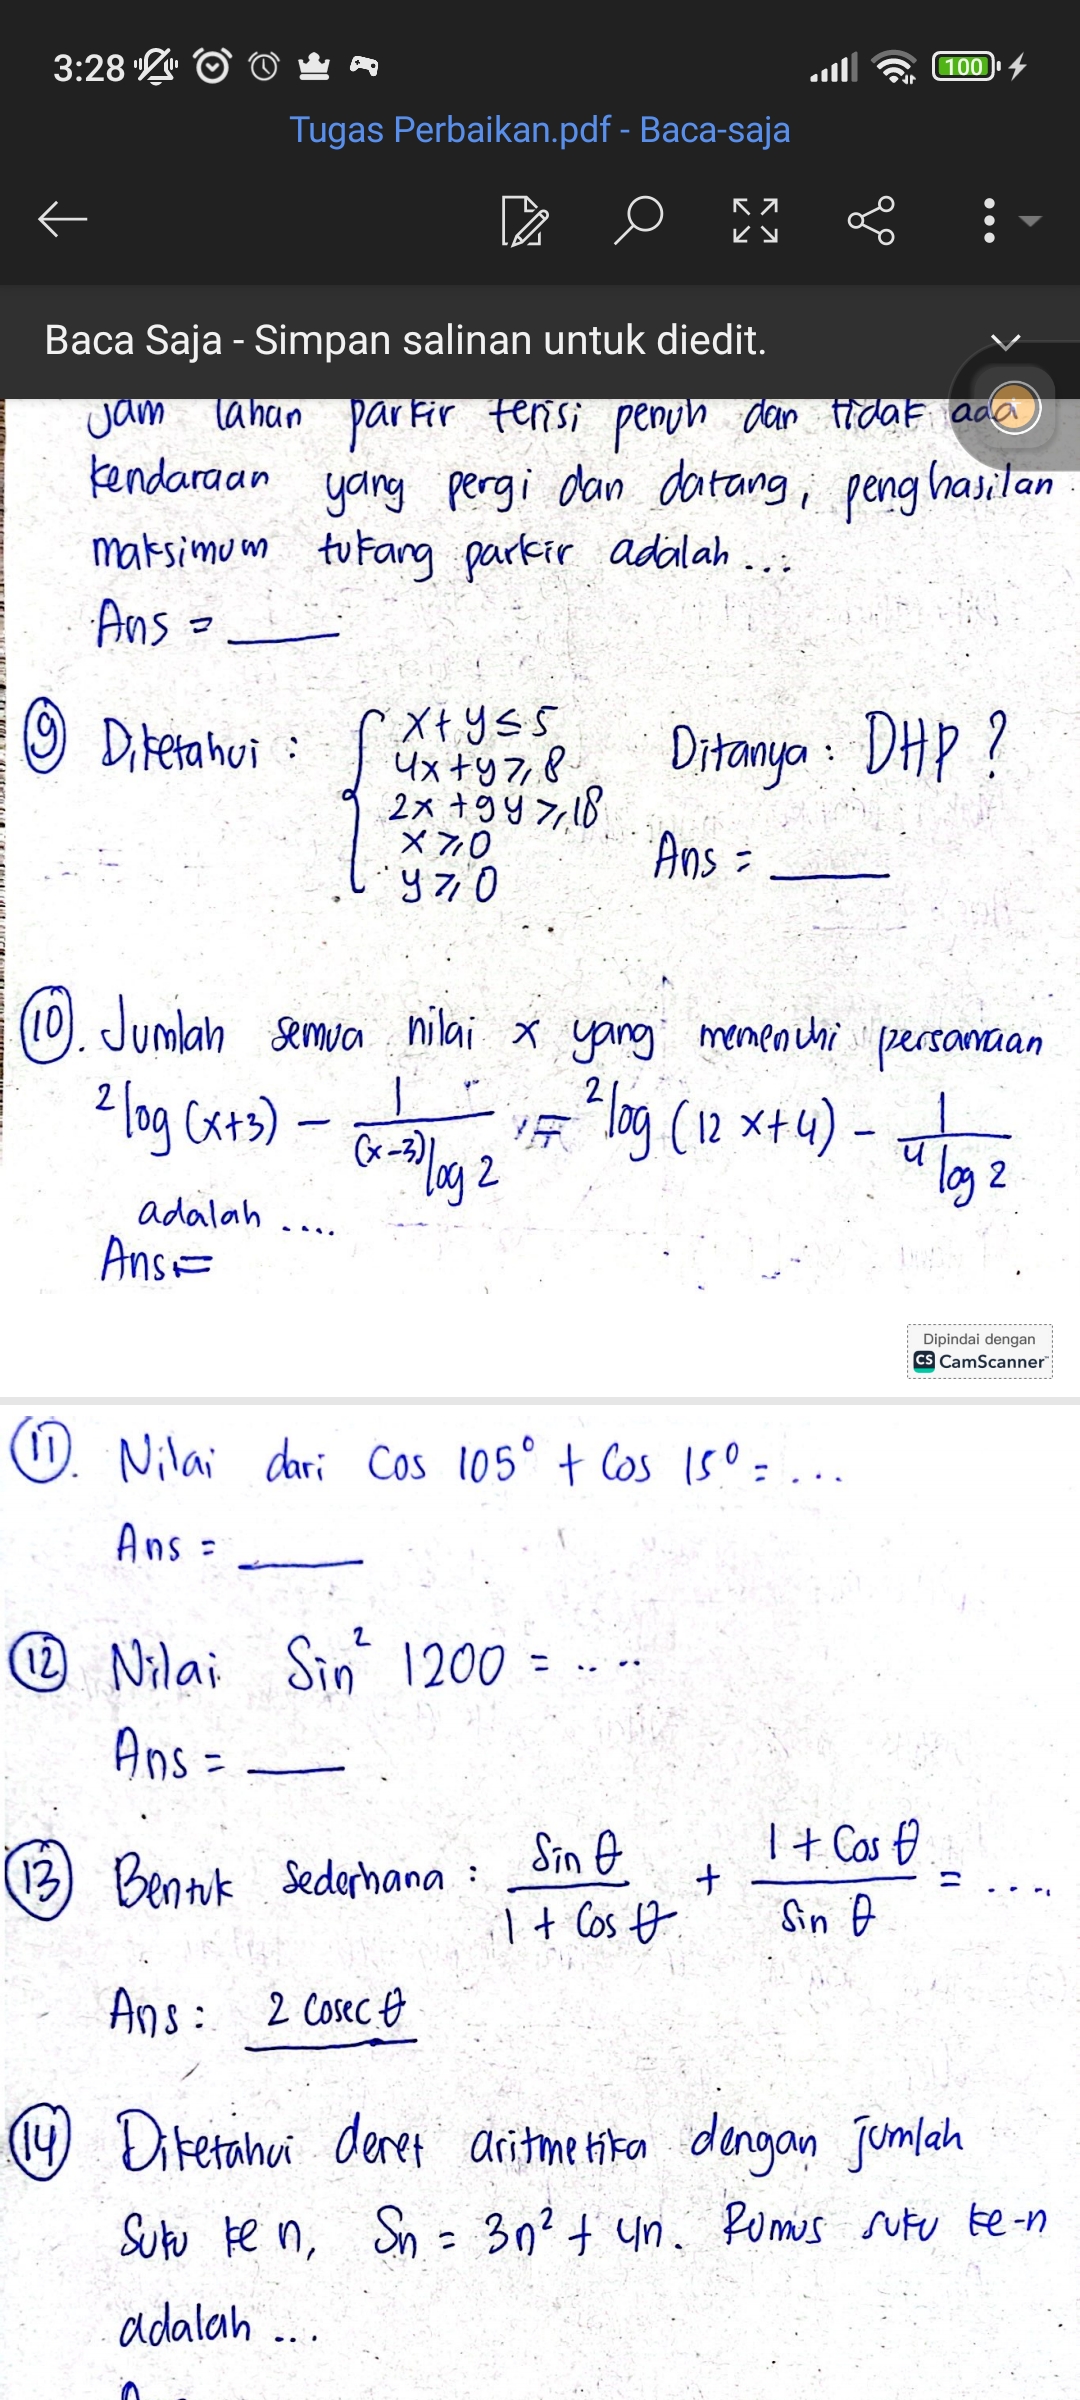 3:28
100
Tugas Perbaikan.pdf - Baca-saja
Baca Saja - Simpan salinan untuk diedit.
jam lahan parkir terisi penuh dan tidak ada
kendaraan yang pergi dan datang, penghasilan
maksimum tukang parkir adalah ...
Ans = ____
9 Diketahui : { x + y ≤ 5 Ditanya : DHP ?
4x + y ≥ 8
2x + 9y ≥ 18
x ≥ 0 Ans = ____
y ≥ 0
10. Jumlah semua nilai x yang memenuhi persamaan
²log (x+3) - 1/((x-3)log 2) = ²log (12x+4) - 1/(⁴log 2)
adalah ....
Ans =
Dipindai dengan
CS CamScanner
11. Nilai dari Cos 105° + Cos 15° = ...
Ans = ____
12 Nilai Sin² 1200 = ....
Ans = ____
13 Bentuk Sederhana : Sin θ/(1 + Cos θ) + (1 + Cos θ)/Sin θ = ....
Ans : 2 Cosec θ
14 Diketahui deret aritmetika dengan jumlah
Suku ke n, Sn = 3n² + 4n. Rumus suku ke-n
adalah ...